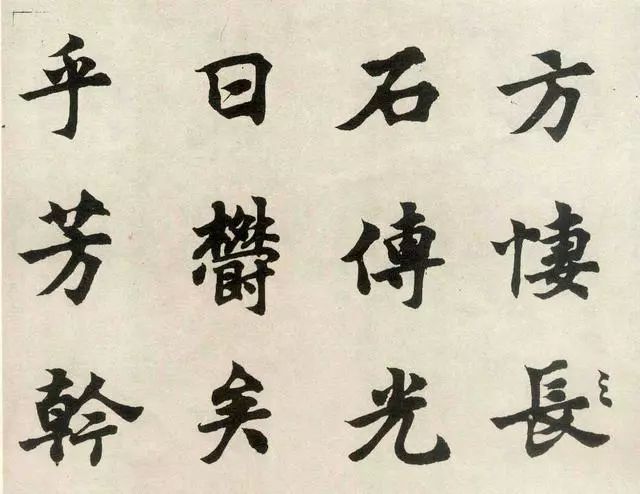 方悽長
石傳光
曰欝矣
乎芳幹